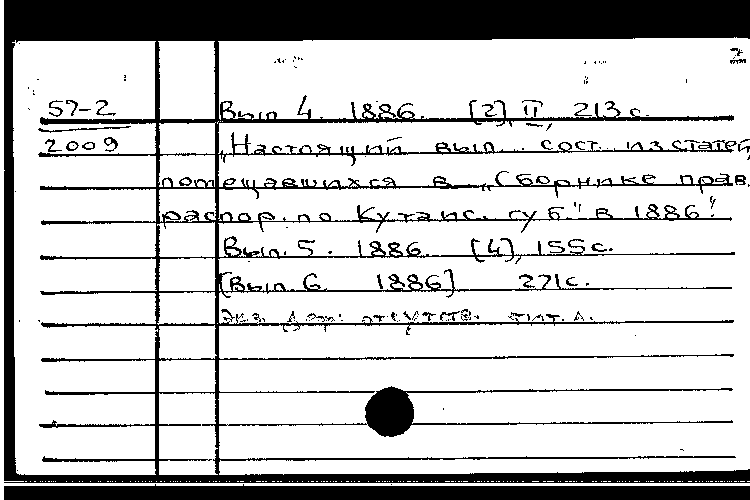 2
57-2 Вып 4. 1886. [2], II, 213 с.
2009 „Настоящий вып. сост. из статей
помещавшихся в „Сборнике прав.
распор. по Кутаис. губ." в 1886".
Вып. 5. 1886. [4], 155 с.
[Вып. 6. 1886] 271 с.
Экз. деф: отсутств. тит. л.